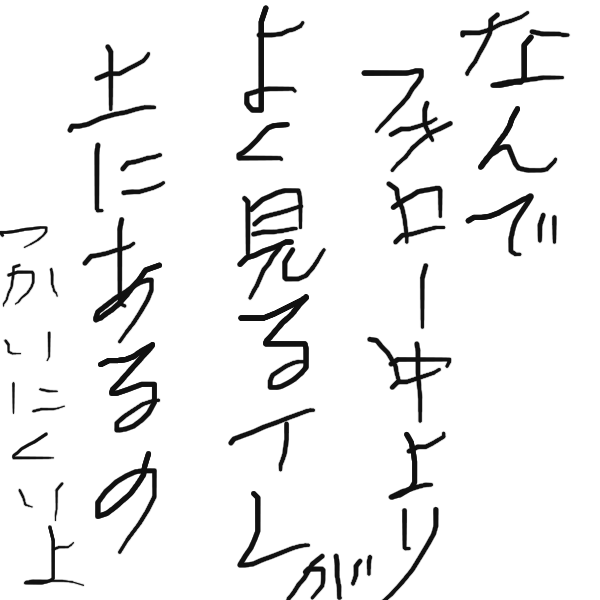 なんで
フォロー中より
よく見るTLが
上にあるの
つかいにくい上